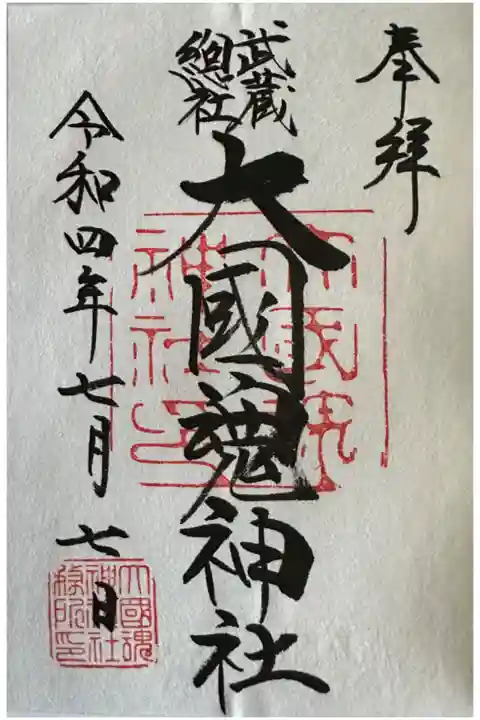 奉拝
武蔵
總社
大國魂神社
令和四年七月七日
大國魂
神社印
大國魂
神社社
務所印